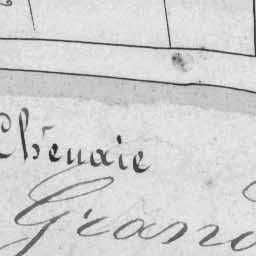 Chênaie
Grand